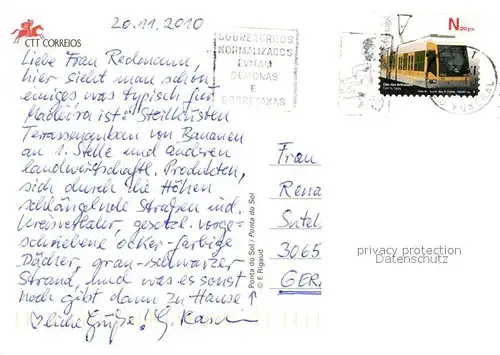 20.11.2010
CTT CORREIOS
SOBRESCRITOS
NORMALIZADOS
EVITAM
DEMORAS
E
SOBRETAXAS
N20grs.
FUNCHAL
Liebe Frau Redmann,
hier sieht man schön
einiges was typisch für
Madeira ist: Steilküsten
Terrassenanbau von Bananen
an 1. Stelle und anderen
landwirtschaftl. Produkten,
sich durch die Höhen
schlängelnde Straßen incl.
Kreisverkehr, gesetzl. vorge-
schriebene ocker-farbige
Dächer, grau-schwarzer
Strand, und was es sonst
noch gibt dann zu Hause ↑
♡liche Grüße! G.
Ponta do Sol / Ponta do Sol
© F. Rigaud
Frau
Rena
3065
GER
privacy protection
Datenschutz